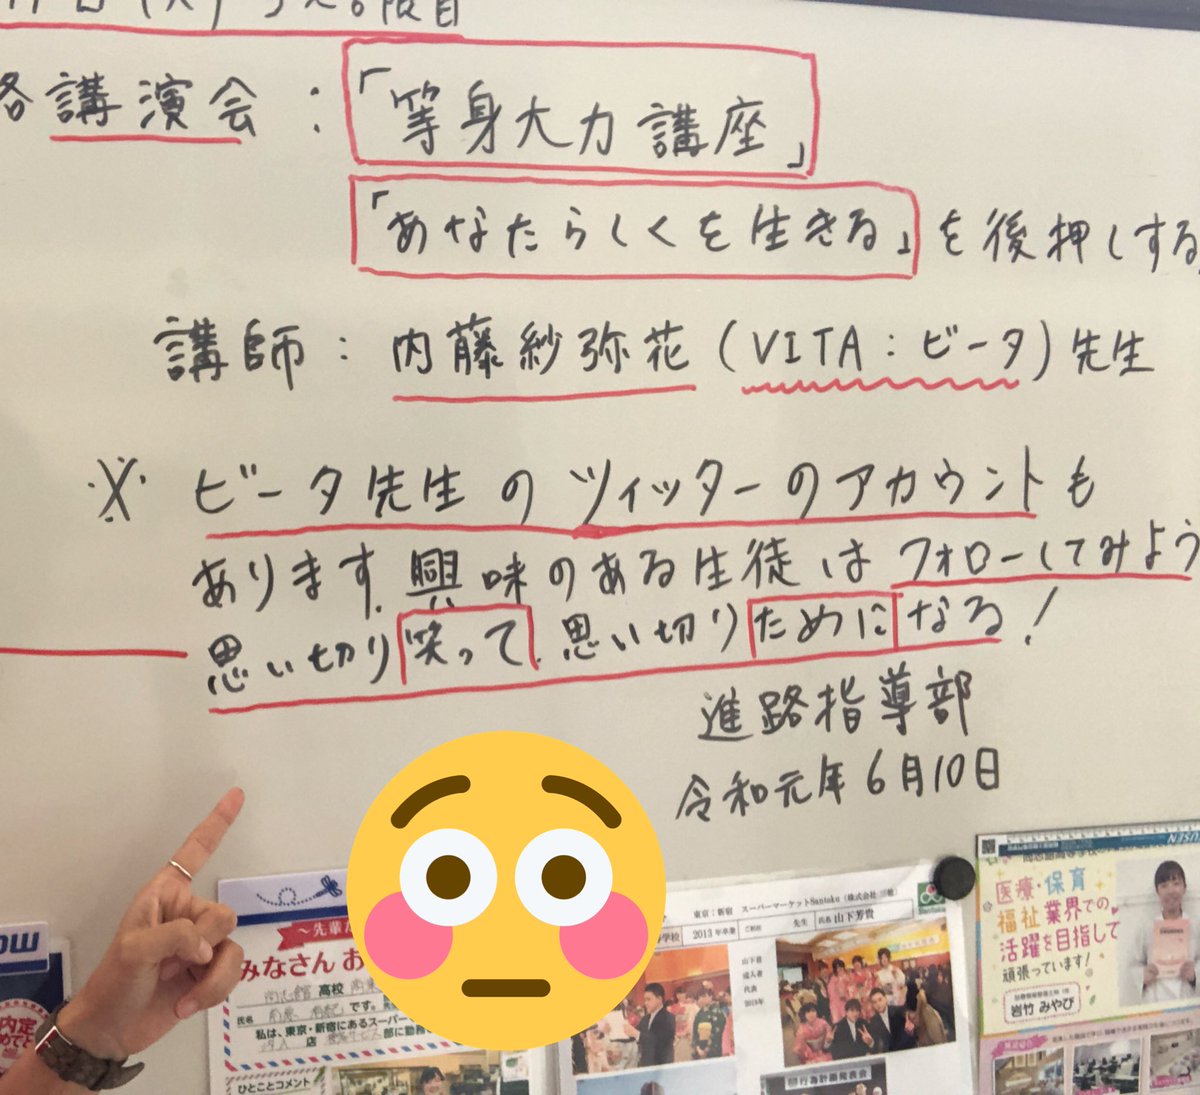 講演会：「等身大力講座」
「あなたらしくを生きる」を後押しする
講師：内藤紗弥花（VITA：ビータ）先生
※ ビータ先生のツィッターのアカウントも
あります。興味のある生徒はフォローしてみよう
思い切り笑って、思い切りためになる！
進路指導部
令和元年6月10日
みなさん お
高校
氏名
です。
私は、東京・新宿にあるスーパー
店
ひとことコメント
東京：新宿 スーパーマーケットSantoku（株式会社 三徳）
学校 2013年卒業 ご担任 先生 氏名 山下芳貴
山下君
成人者
代表
行為計画発表会
医療・保育
福祉業界での
活躍を目指して
頑張っています！
岩竹 みやび
内定